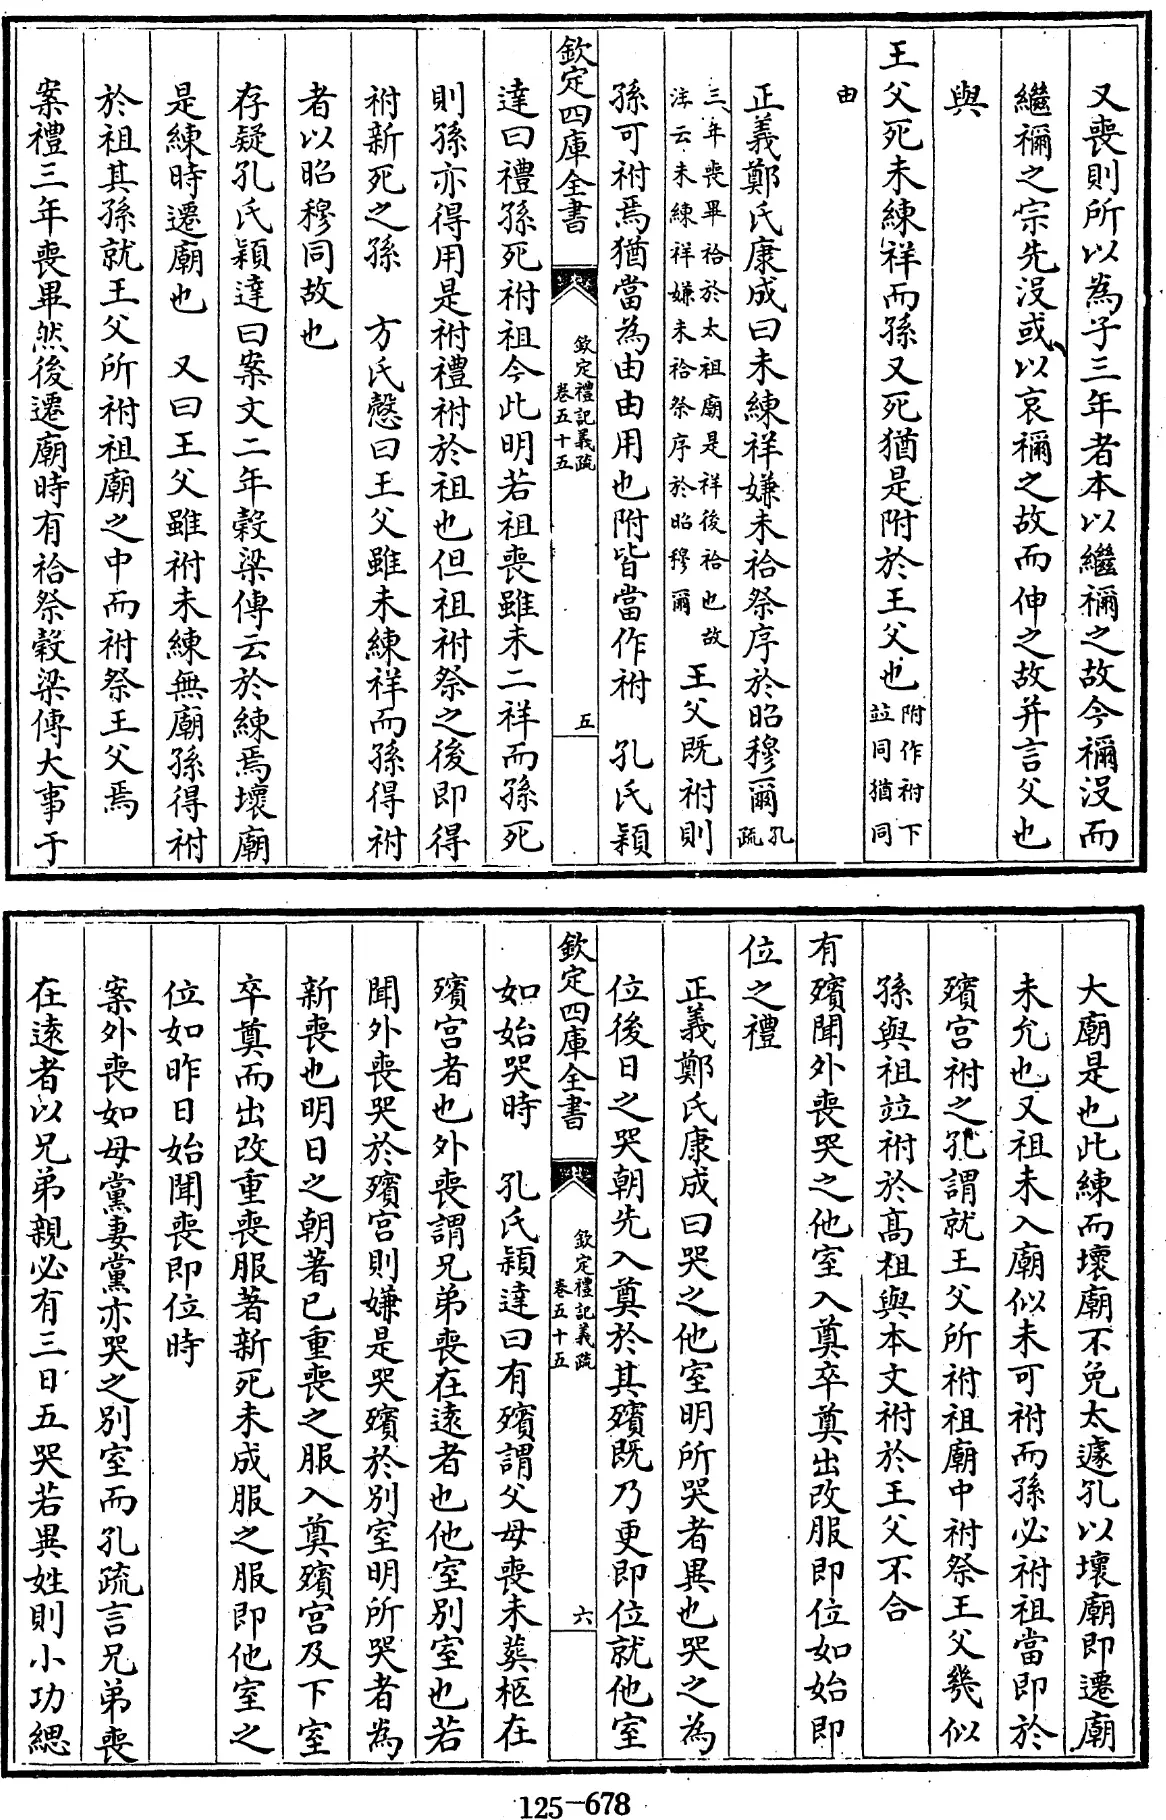 又喪則所以為子三年者本以繼禰之故今禰没而
繼禰之宗先没或以哀禰之故而伸之故并言父也
與
王父死未練祥而孫又死猶是附於王父也附作祔下
竝同猶同
由
正義鄭氏康成曰未練祥嫌未祫祭序於昭穆爾孔
疏
三年喪畢祫於太祖廟是祥後祫也故
注云未練祥嫌未祫祭序於昭穆爾
王父既祔則
孫可祔焉猶當為由由用也附皆當作祔　孔氏穎
欽定四庫全書
欽定禮記義疏
卷五十五
五
達曰禮孫死祔祖今此明若祖喪雖未二祥而孫死
則孫亦得用是祔禮祔於祖也但祖祔祭之後即得
祔新死之孫　方氏慤曰王父雖未練祥而孫得祔
者以昭穆同故也
存疑孔氏穎達曰案文二年穀梁傳云於練焉壞廟
是練時遷廟也　又曰王父雖祔未練無廟孫得祔
於祖其孫就王父所祔祖廟之中而祔祭王父焉
案禮三年喪畢然後遷廟時有祫祭穀梁傳大事于
大廟是也此練而壞廟不免太遽孔以壞廟即遷廟
未允也又祖未入廟似未可祔而孫必祔祖當即於
殯宫祔之孔謂就王父所祔祖廟中祔祭王父幾似
孫與祖竝祔於髙祖與本文祔於王父不合
有殯聞外喪哭之他室入奠卒奠出改服即位如始即
位之禮
正義鄭氏康成曰哭之他室明所哭者異也哭之為
位後日之哭朝先入奠於其殯既乃更即位就他室
欽定四庫全書
欽定禮記義疏
卷五十五
六
如始哭時　孔氏穎達曰有殯謂父母喪未葬柩在
殯宫者也外喪謂兄弟喪在逺者也他室别室也若
聞外喪哭於殯宫則嫌是哭殯於别室明所哭者為
新喪也明日之朝著已重喪之服入奠殯宫及下室
卒奠而出改重喪服著新死未成服之服即他室之
位如昨日始聞喪即位時
案外喪如母黨妻黨亦哭之别室而孔疏言兄弟喪
在逺者以兄弟親必有三日五哭若異姓則小功緦
125-678